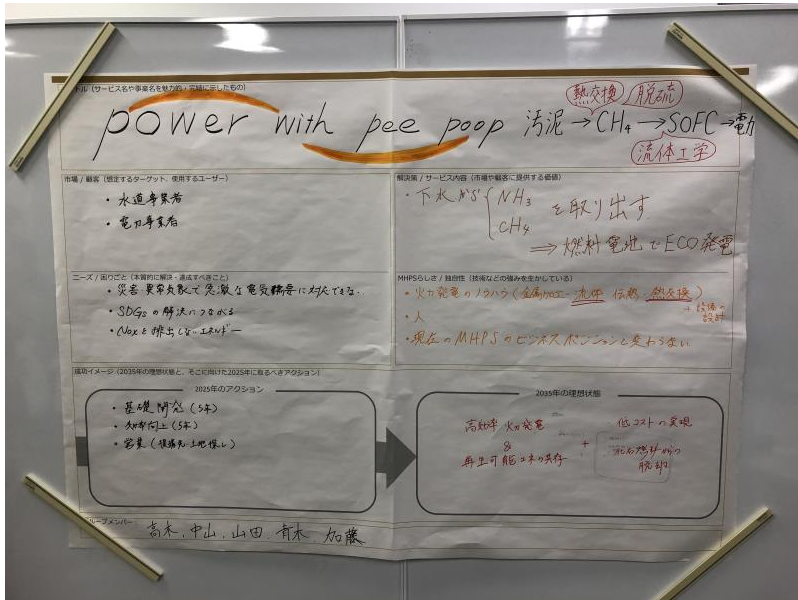 トル（サービス名や事業名を魅力的・完結に示したもの）
熱交換 脱硫
power with pee poop 汚泥→CH₄→SOFC→電力
流体工学
市場 / 顧客（想定するターゲット、使用するユーザー）
・水道事業者
・電力事業者
解決策 / サービス内容（市場や顧客に提供する価値）
・下水から{NH₃
CH₄
を取り出す
⇒燃料電池でECO発電
ニーズ / 困りごと（本質的に解決・達成すべきこと）
・災害・異常気象で急激な電気需要に対応できる.
・SDGsの解決につながる
・Noxを排出しないエネルギー
MHPSらしさ / 独自性（技術などの強みを生かしている）
・火力発電のノウハウ（金属加工・流体 伝熱 熱交換）
+ 設備の
設計
・人
・現在のMHPSのビジネスポジションと変わらない
成功イメージ（2035年の理想状態と、そこに向けた2025年に取るべきアクション）
2025年のアクション
・基礎開発（5年）
・効率向上（5年）
・営業（提携先・土地探し）
2035年の理想状態
高効率 火力発電
&
再生可能エネの共存
+
低コストの実現
化石燃料からの
脱却
ループメンバー
高木, 中山, 山田, 青木, 加藤